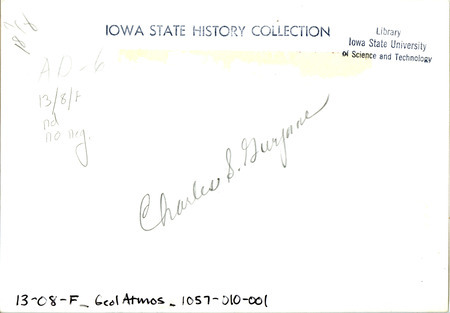 IOWA STATE HISTORY COLLECTION
Library
Iowa State University
of Science and Technology
AD-6
13/8/F
nd
no neg.
Charles S. Gwynne
13-08-F_ Geol Atmos_ 1057-010-001